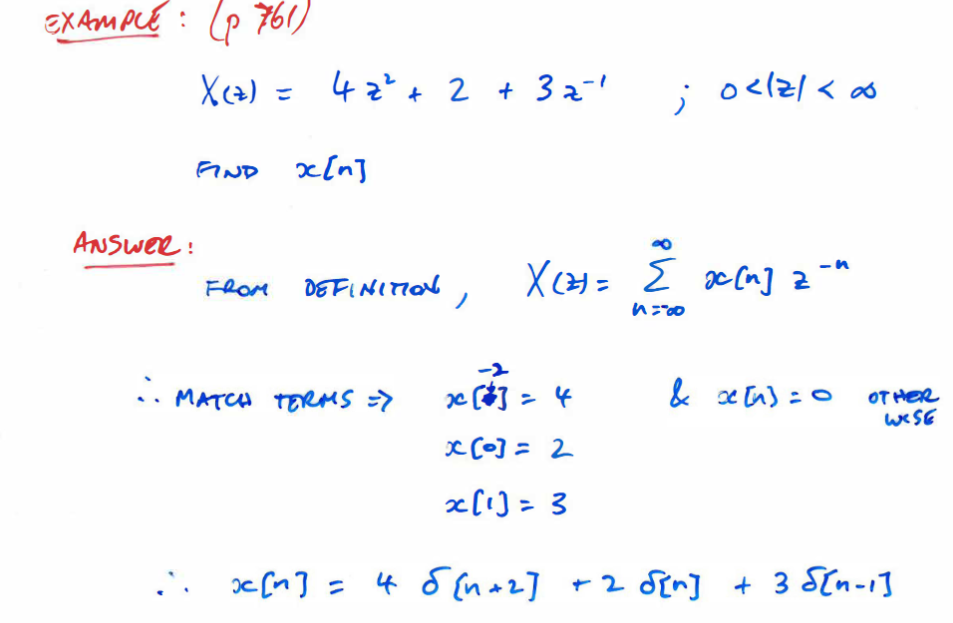 EXAMPLE: (p 761)
X(z) = 4z² + 2 + 3z⁻¹ ; 0<|z|<∞
FIND x[n]
ANSWER:
FROM DEFINITION, X(z) = ∞ Σ n=-∞ x[n] z⁻ⁿ
∴ MATCH TERMS ⇒ x[-2] = 4 & x[n] = 0 OTHER WISE
x[0] = 2
x[1] = 3
∴ x[n] = 4 δ[n+2] + 2 δ[n] + 3 δ[n-1]